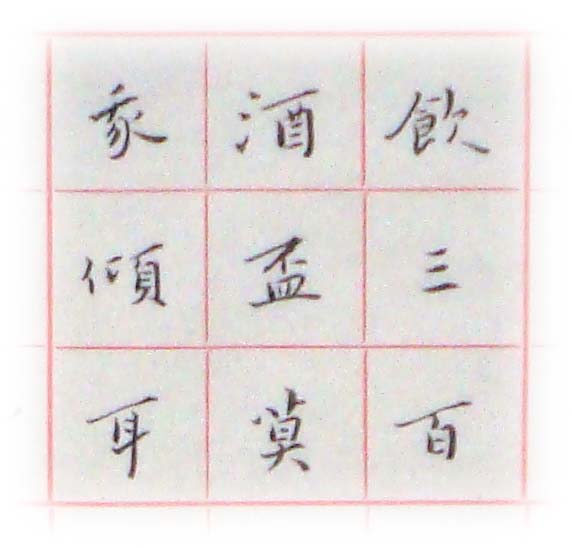 飲三百
酒盃莫
我傾耳